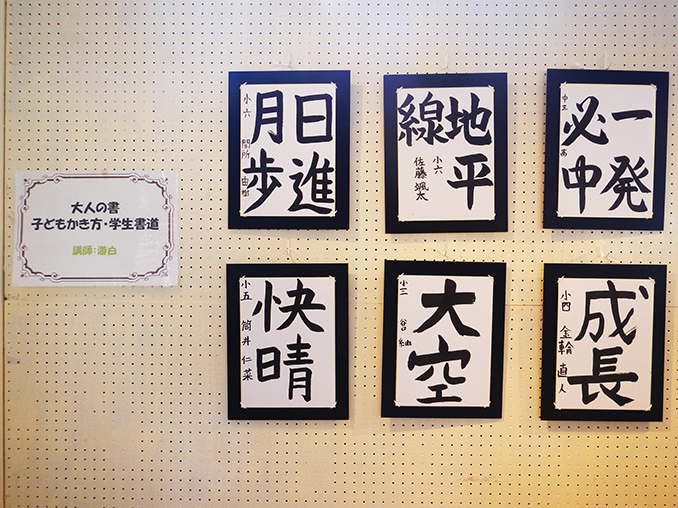 大人の書
子どもかき方・学生書道
講師:游白
日進
月歩
小六
間所 由樹
地平
線
小六
佐藤颯太
一発
必中
中三
快晴
小五
筒井仁菜
大空
小二
谷紬
成長
小四
金輪直人